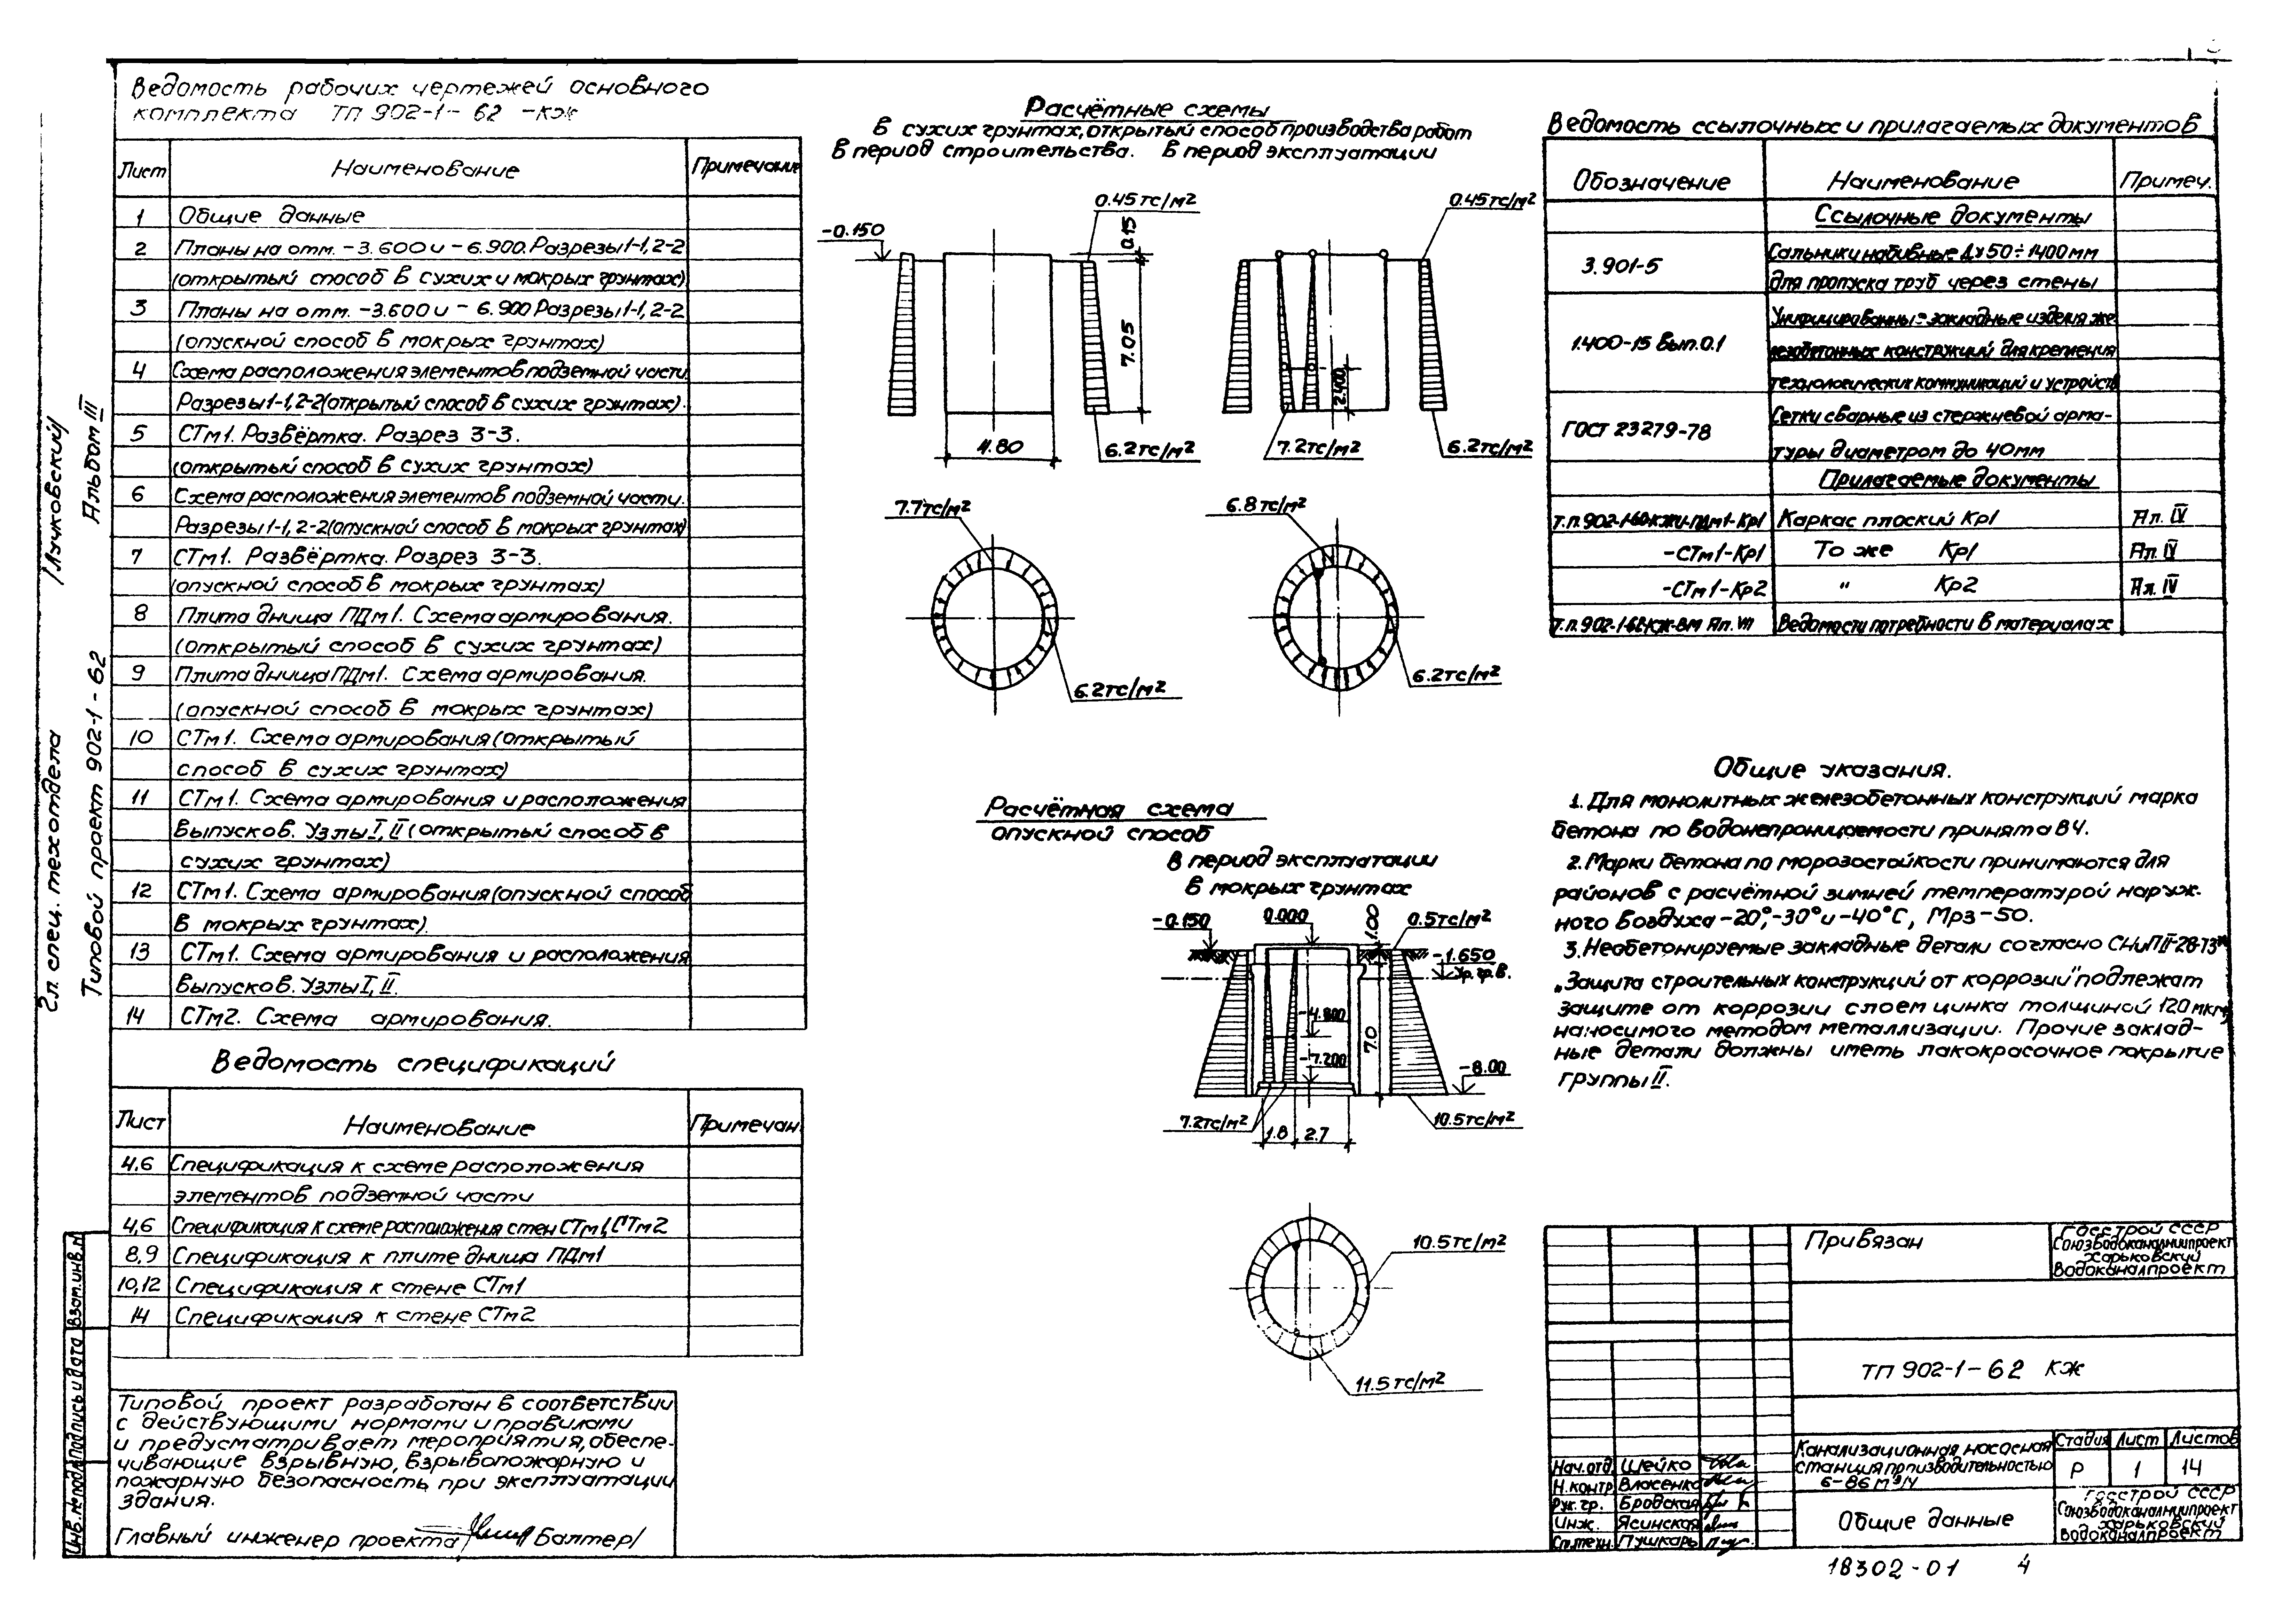 Ведомость рабочих чертежей основного
комплекта ТП 902-1-62 -КЖ
Лист Наименование Примечание
1 Общие данные
2 Планы на отм. -3.600 и -6.900. Разрезы 1-1, 2-2
(открытый способ в сухих и мокрых грунтах)
3 Планы на отм. -3.600 и -6.900 Разрезы 1-1, 2-2
(опускной способ в мокрых грунтах)
4 Схема расположения элементов подземной части.
Разрезы 1-1, 2-2 (открытый способ в сухих грунтах).
5 СТм1. Развёртка. Разрез 3-3.
(открытый способ в сухих грунтах)
6 Схема расположения элементов подземной части.
Разрезы 1-1, 2-2 (опускной способ в мокрых грунтах)
7 СТм1. Развёртка. Разрез 3-3.
(опускной способ в мокрых грунтах)
8 Плита днища ПДм1. Схема армирования.
(открытый способ в сухих грунтах)
9 Плита днища ПДм1. Схема армирования.
(опускной способ в мокрых грунтах)
10 СТм1. Схема армирования (открытый
способ в сухих грунтах)
11 СТм1. Схема армирования и расположения
выпусков. Узлы I, II (открытый способ в
сухих грунтах)
12 СТм1. Схема армирования (опускной способ
в мокрых грунтах).
13 СТм1. Схема армирования и расположения
выпусков. Узлы I, II.
14 СТм2. Схема армирования.
Ведомость спецификаций
Лист Наименование Примечан.
4,6 Спецификация к схеме расположения
элементов подземной части
4,6 Спецификация к схеме расположения стен СТм1, СТм2
8,9 Спецификация к плите днища ПДм1
10,12 Спецификация к стене СТм1
14 Спецификация к стене СТм2
Типовой проект разработан в соответствии
с действующими нормами и правилами
и предусматривает мероприятия, обеспе-
чивающие взрывную, взрывопожарную и
пожарную безопасность при эксплуатации
здания.
Главный инженер проекта /Балтер/
Гл. спец. техотдела /Лучковский/
Типовой проект 902-1-62 Альбом III
Инв. № подл. Подпись и дата Взам. инв. №
Расчётные схемы
в сухих грунтах, открытый способ производства работ
в период строительства. в период эксплуатации
-0.150
0.45тс/м²
0.15
7.05
4.80
6.2тс/м²
0.45тс/м²
2.400
7.2тс/м²
6.2тс/м²
7.7тс/м²
6.2тс/м²
6.8тс/м²
6.2тс/м²
Расчётная схема
опускной способ
в период эксплуатации
в мокрых грунтах
-0.150
0.000
1.00
0.5тс/м²
-1.650
Ур. гр. в.
-4.800
-7.200
7.0
-8.00
7.2тс/м²
1.8
2.7
10.5тс/м²
10.5тс/м²
11.5тс/м²
Ведомость ссылочных и прилагаемых документов
Обозначение Наименование Примеч.
Ссылочные документы
3.901-5 Сальники набивные Ду 50÷1400мм
для пропуска труб через стены
1.400-15 Вып.0.1 Унифицированные закладные изделия же
лезобетонных конструкций для крепления
технологических коммуникаций и устройств
ГОСТ 23279-78 Сетки сварные из стержневой арма-
туры диаметром до 40мм
Прилагаемые документы
т.п.902-1-60-КЖИ-ПДм1-Кр1 Каркас плоский Кр1 Ал. IV
-СТм1-Кр1 То же Кр1 Ал. IV
-СТм1-Кр2 " Кр2 Ал. IV
т.п.902-1-62-КЖ-ВМ Ал. VII Ведомости потребности в материалах
Общие указания.
1. Для монолитных железобетонных конструкций марка
бетона по водонепроницаемости принята В4.
2. Марки бетона по морозостойкости принимаются для
районов с расчётной зимней температурой наруж-
ного воздуха -20°,-30° и -40°С, Мрз-50.
3. Необетонируемые закладные детали согласно СНиП II-28-73*
„Защита строительных конструкций от коррозии" подлежат
защите от коррозии слоем цинка толщиной 120 мкм,
наносимого методом металлизации. Прочие заклад-
ные детали должны иметь лакокрасочное покрытие
группы II.
Привязан
Госстрой СССР
Союзводоканалниипроект
Харьковский
Водоканалпроект
ТП 902-1-62 КЖ
Нач.отд. Шейко
Н.контр. Власенко
Рук.гр. Бродская
Инж. Ясинская
Ст.техн. Пушкарь
Канализационная насосная
станция производительностью
6-86 м³/ч
Стадия Лист Листов
Р 1 14
Общие данные
Госстрой СССР
Союзводоканалниипроект
Харьковский
Водоканалпроект
18302-01 4